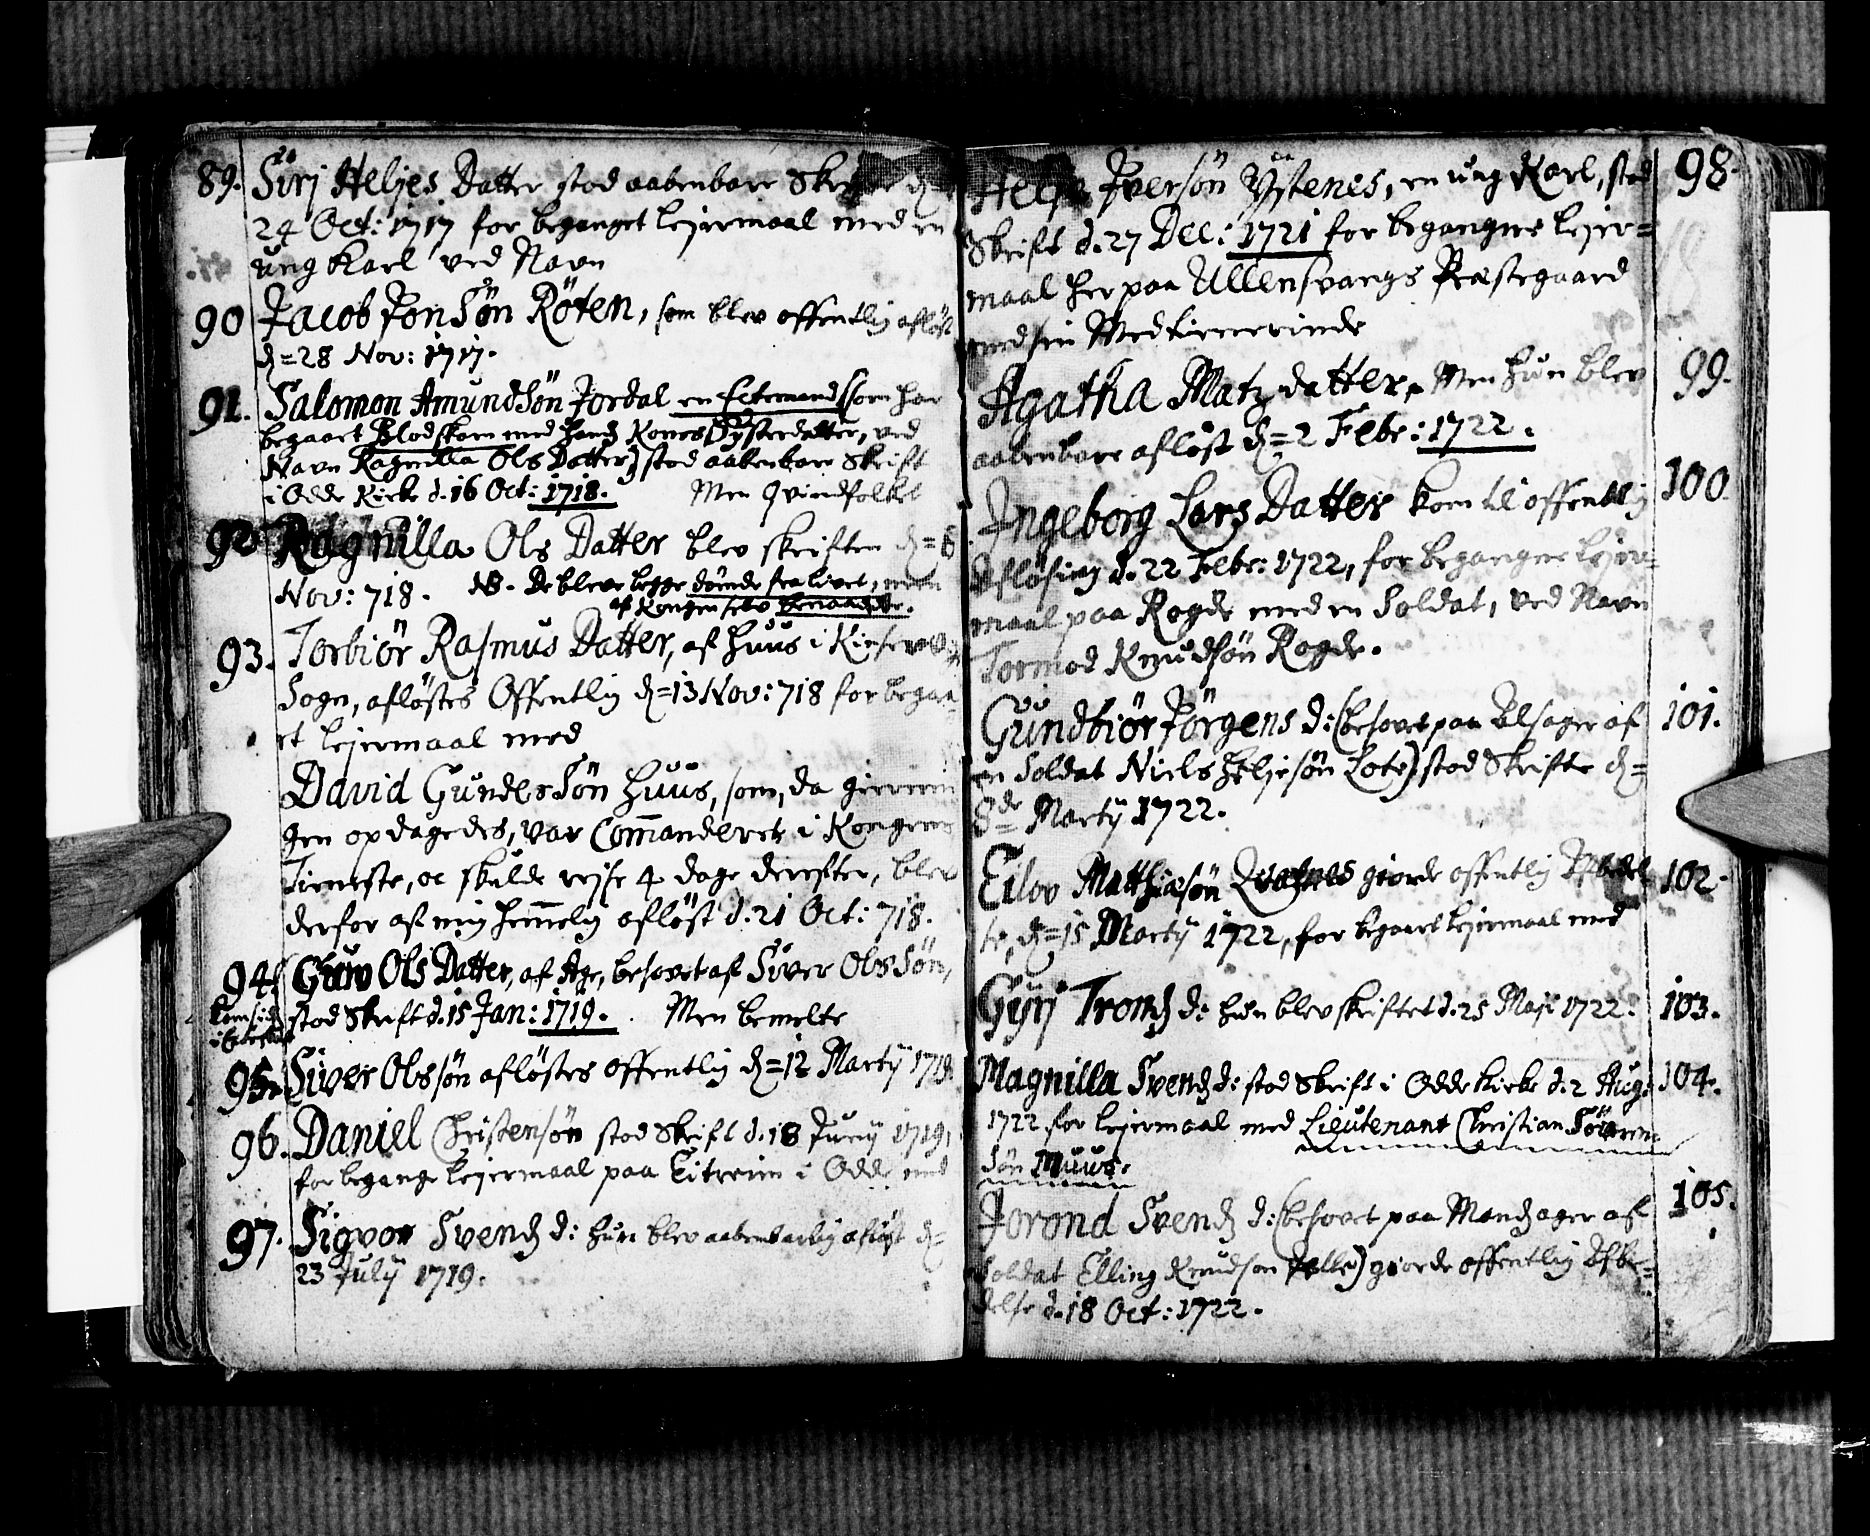 89. Siri Heljes Datter stod aabenbare Skrifte d=
24 Oct: 1717 for beganget lejermaal med en
ung Karl ved Navn
90 Jacob JonSøn Røten, som blev offentlig afløst
d=28 Nov: 1717.
91. Salomon AmundSøn Jordal en Ectemand (som har
begaaet Blodskam med hans Kones Systerdatter, ved
Navn Ragnilla Ols Datter) stod aabenbare Skrift
i Odde Kirke d. 16 Oct: 1718. Men Qvindfolket
92 Ragnilla Ols Datter blev skriften d=6
Nov: 718. NB. De bleve begge dømde fra livet, men
af Kongen selv benaadede.
93. Torbiør Rasmus Datter, af Huus i Kinservigs
Sogn, afløstes Offentlig d=13 Nov: 718 for begaa-
et lejermaal med
David GunderSøn Huus, som, da gierning
gen opdagedes, var Commanderet i Kongens
Tieneste, oc skulde rejse 4 dage derefter, blev
derfor af mig hemmelig afløst d. 21 Oct: 718.
94. Guro Ols Datter, af Age, besovet af Siver OlsSøn,
kom sid.
i Ecteskab
stod Skrift d. 15 Jan: 1719. Men bemelte
95. Siver Olssøn afløstes offentlig d=12 Martij 1719
96. Daniel Christensøn stod Skrift d. 18 Junij 1719,
for begange lejermaal paa Eitreim i Odde med
97. Sigvor Svends d: hun blev aabenbarlig afløst d=
23 Julij 1719.
Helje Iversøn Ystenes, en ung Karl, stod 98.
Skrift d. 27 Dec: 1721 for begangne lejer=
maal her paa Ullensvangs Præstegaard
med sin Medtienerinde
Agatha Matz datter, Men hun blev 99.
aabenbare afløst d=2 Febr: 1722.
Ingeborg Lars Datter kom til offentlig 100.
Afløsing d. 22 Febr: 1722, for begangne lejer=
maal paa Rogde med en Soldat, ved Navn
Tormod Knudsøn Rogde.
Gundbiør Jørgens d: (besovet paa Alsager af 101.
en Soldat Niels Heljesøn Lote) stod Skrifte d=
8de Martij 1722.
Eilov Matthiasøn giorde offentlig Afbedel 102.
se, d=15 Martij 1722, for begaaet lejermaal med
Gyri Tronds d: hun blev skriftet d. 25 Maji 1722. 103.
Magnilla Svends d: stod Skrift i Odde Kirke d. 2 Aug: 104.
1722 for lejermaal med Lieutenant Christian Søfren=
søn Muus.
Jorond Svends d: (besovet paa Mandsager af 105.
Soldat Elling Knudsøn) giorde offentlig Afbe=
delse d. 18 Oct: 1722.